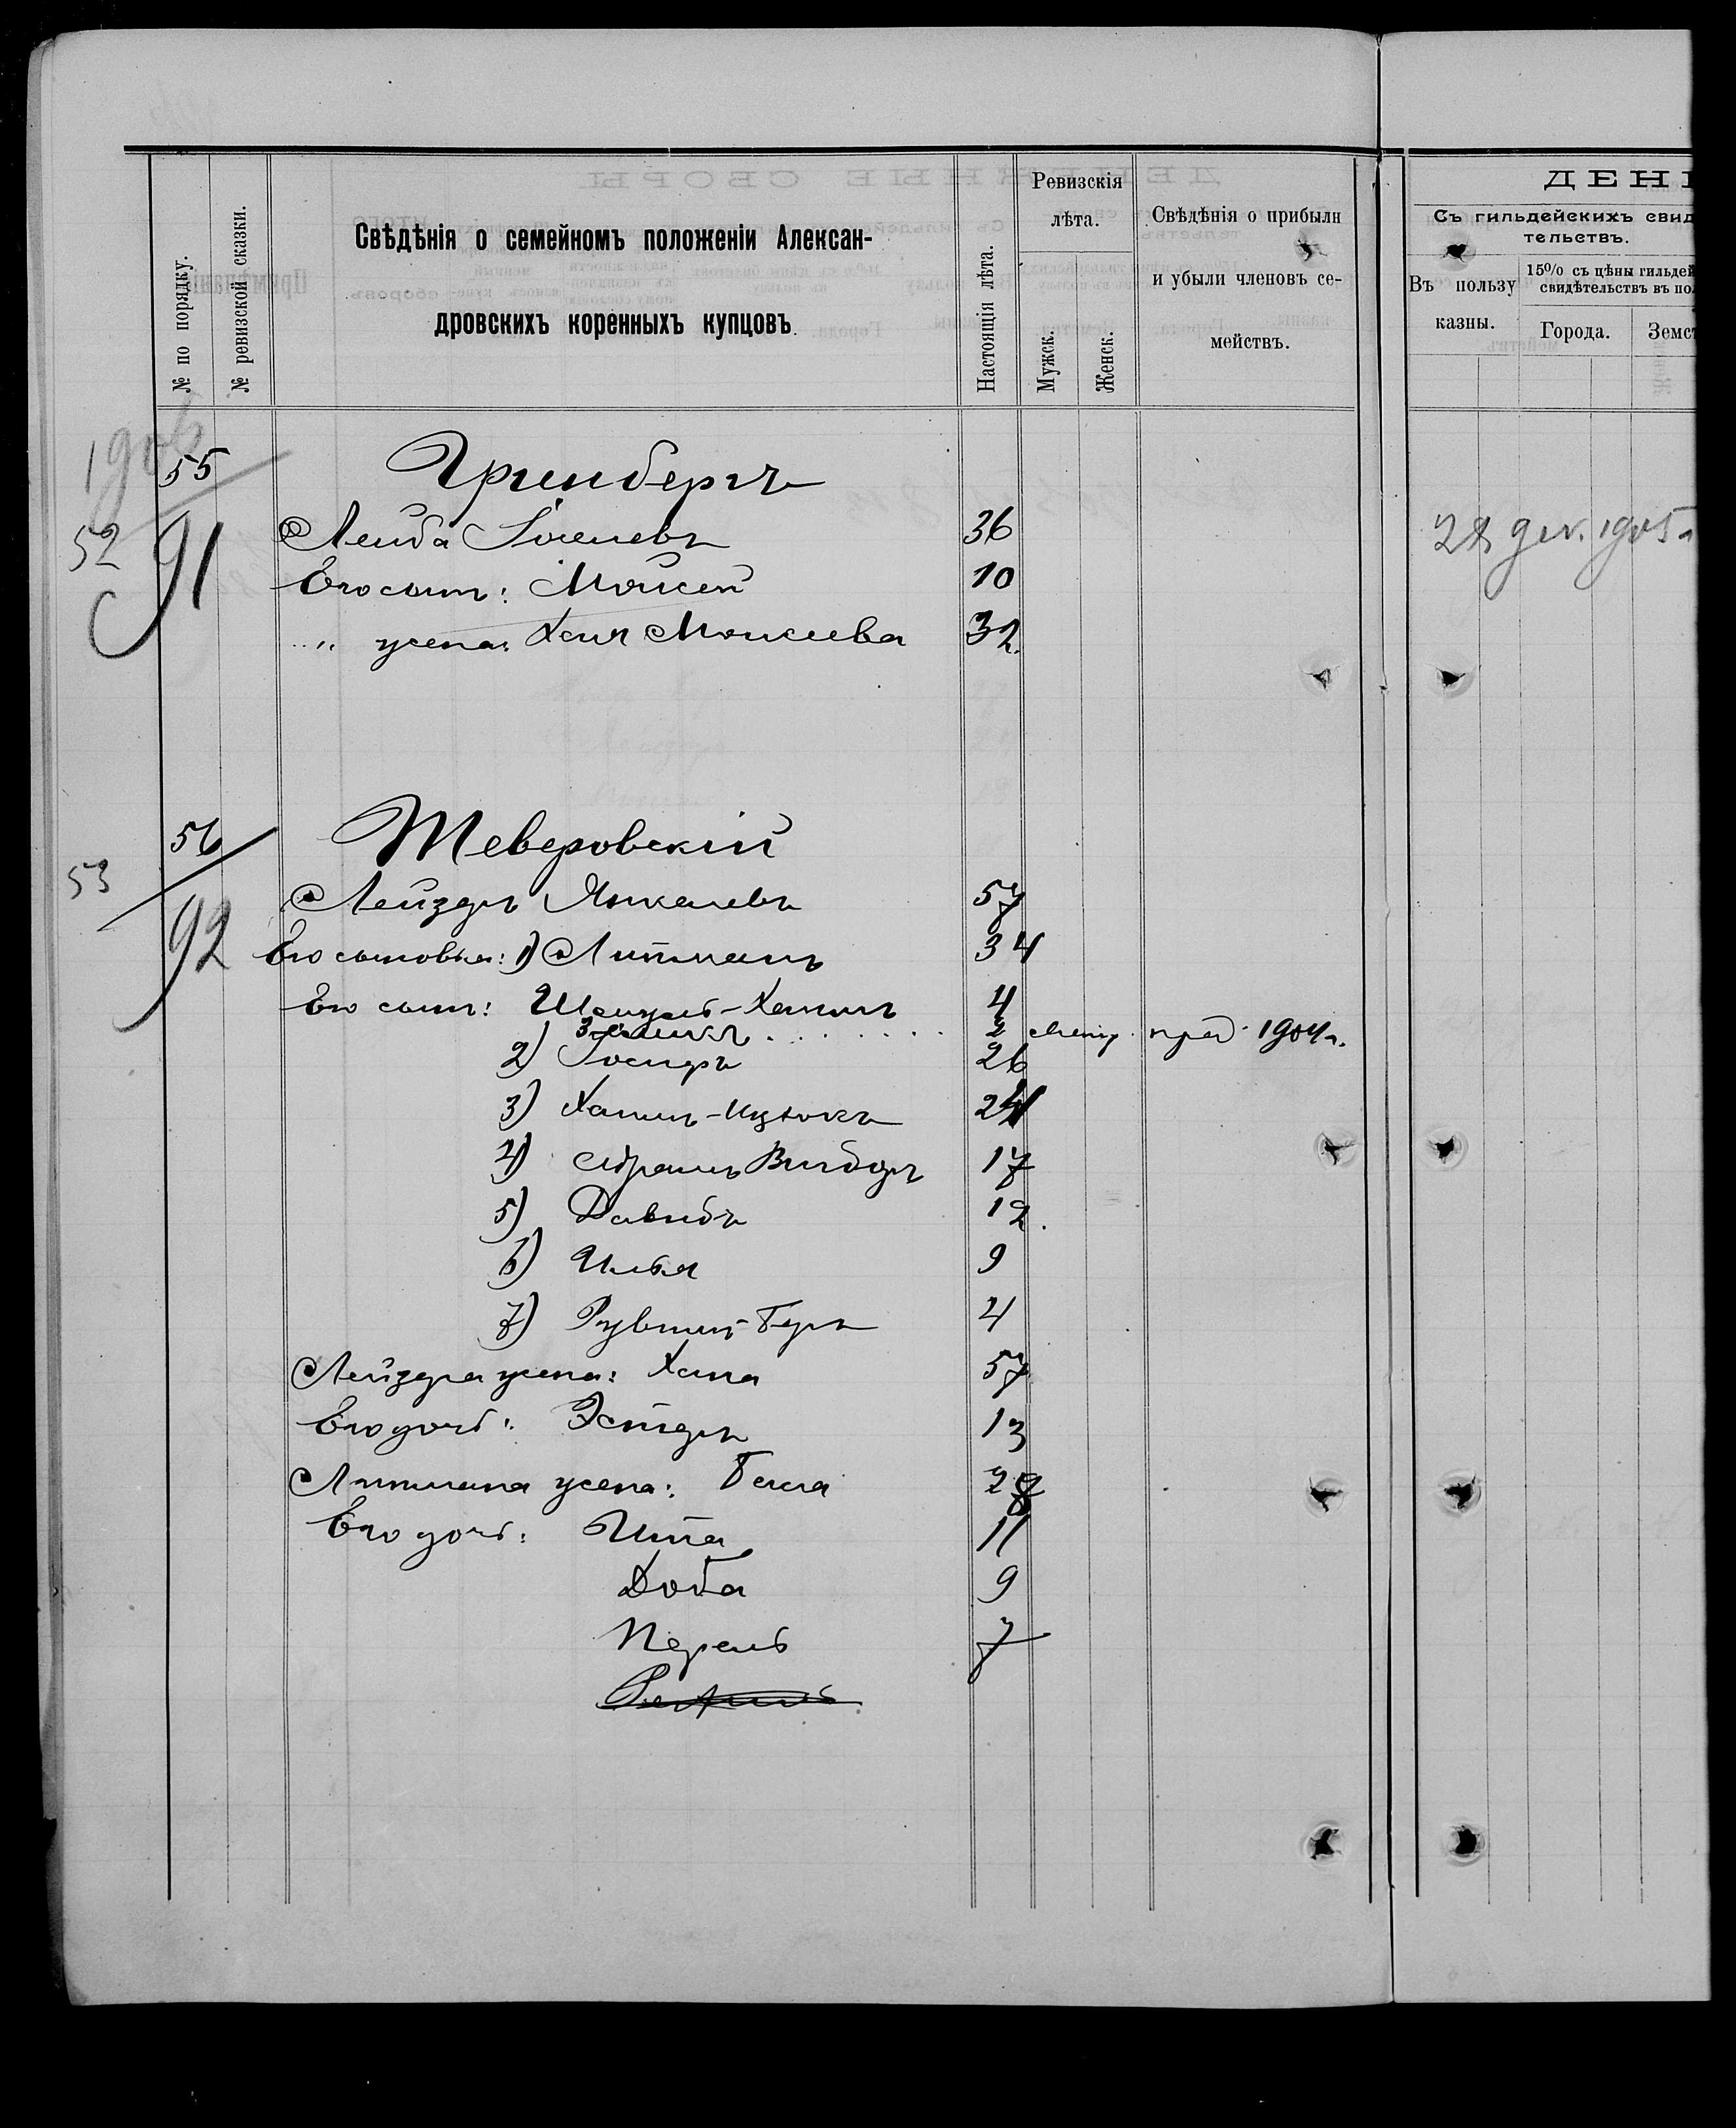 № по порядку.
№ ревизской сказки.
Свѣдѣнія о семейномъ положеніи Алексан-
дровскихъ коренныхъ купцовъ.
Настоящія лѣта.
Ревизскія
лѣта.
Мужск.
Женск.
Свѣдѣнія о прибыли
и убыли членовъ се-
мействъ.
ДЕН
Съ гильдейскихъ свид
тельствъ.
Въ пользу
казны.
15% съ цѣны гильдей
свидѣтельствъ въ по
Города.
Земс
55
52 91
Гринбергъ
Лейба Іоселевъ 36 28 дек. 1905 г.
Его сынъ: Мойсей 10
" жена: Хая Моисеева 32
56
53
92
Теверовскій
Лейзеръ Янкелевъ 57
Его сыновья: 1) Литманъ 34
Его сынъ: Шмуль-Хаимъ 4
2 1904 г.
2) Іосифъ 26
3) Хаимъ-Ицхокъ 24
4) Абрамъ Вигдоръ 17
5) Давидъ 12
6) Илья 9
7) Рувинъ-Беръ 4
Лейзера жена: Хана 57
Его дочь: Эстеръ 13
Литмана жена: Бейла
Его дочь: Ита 11
Доба 9
Перель 7